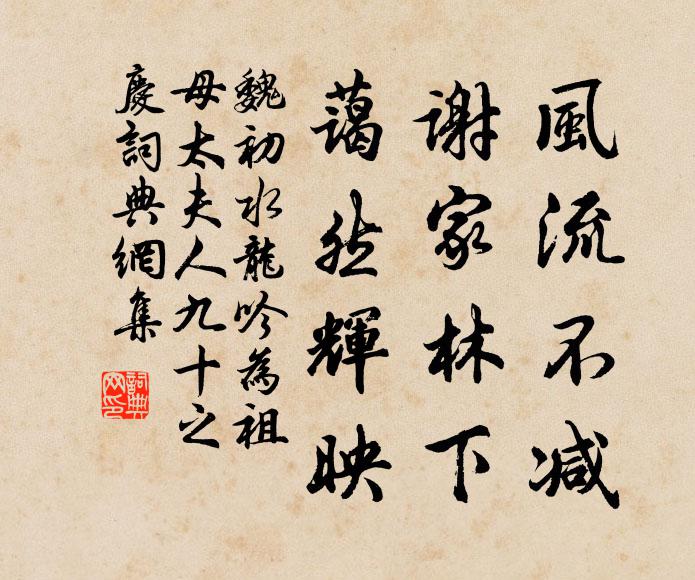 風流不减
謝家林下
藹然輝映
魏初水龍吟為祖
母太夫人九十之
慶詞典網集
詞典
网印